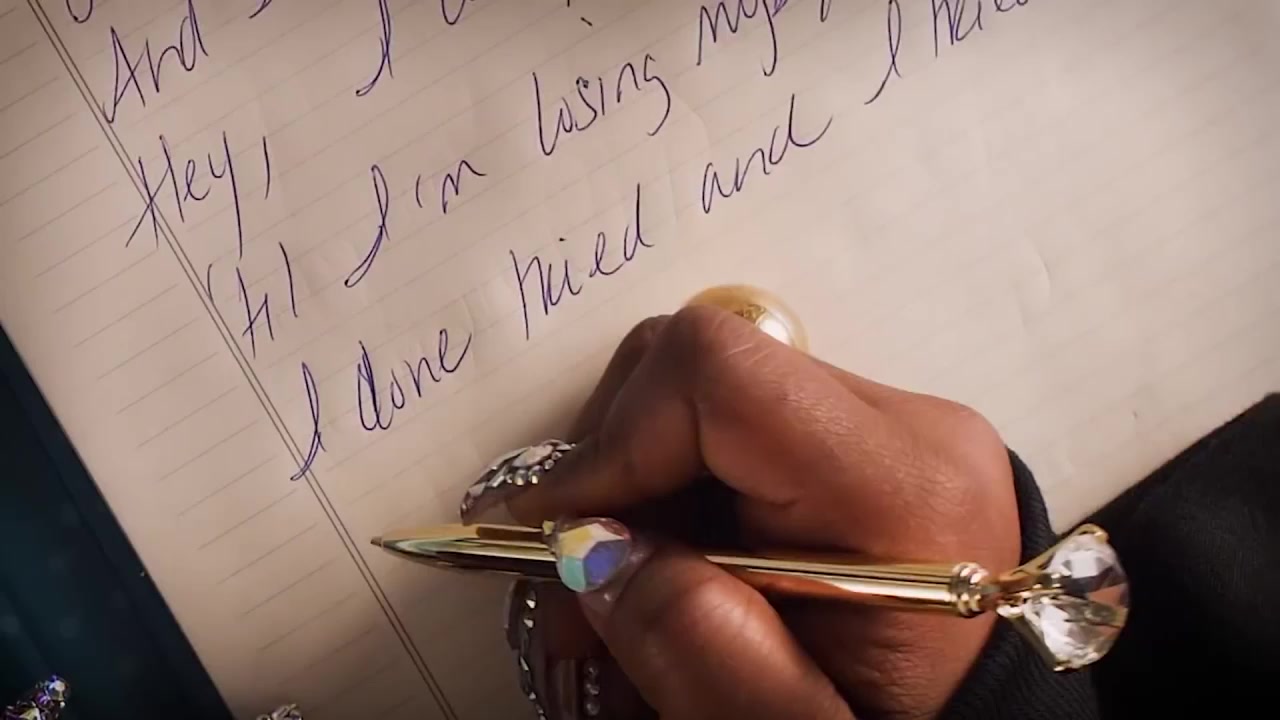 And
Hey, I
'til I'm losing my
I done tried and I tried